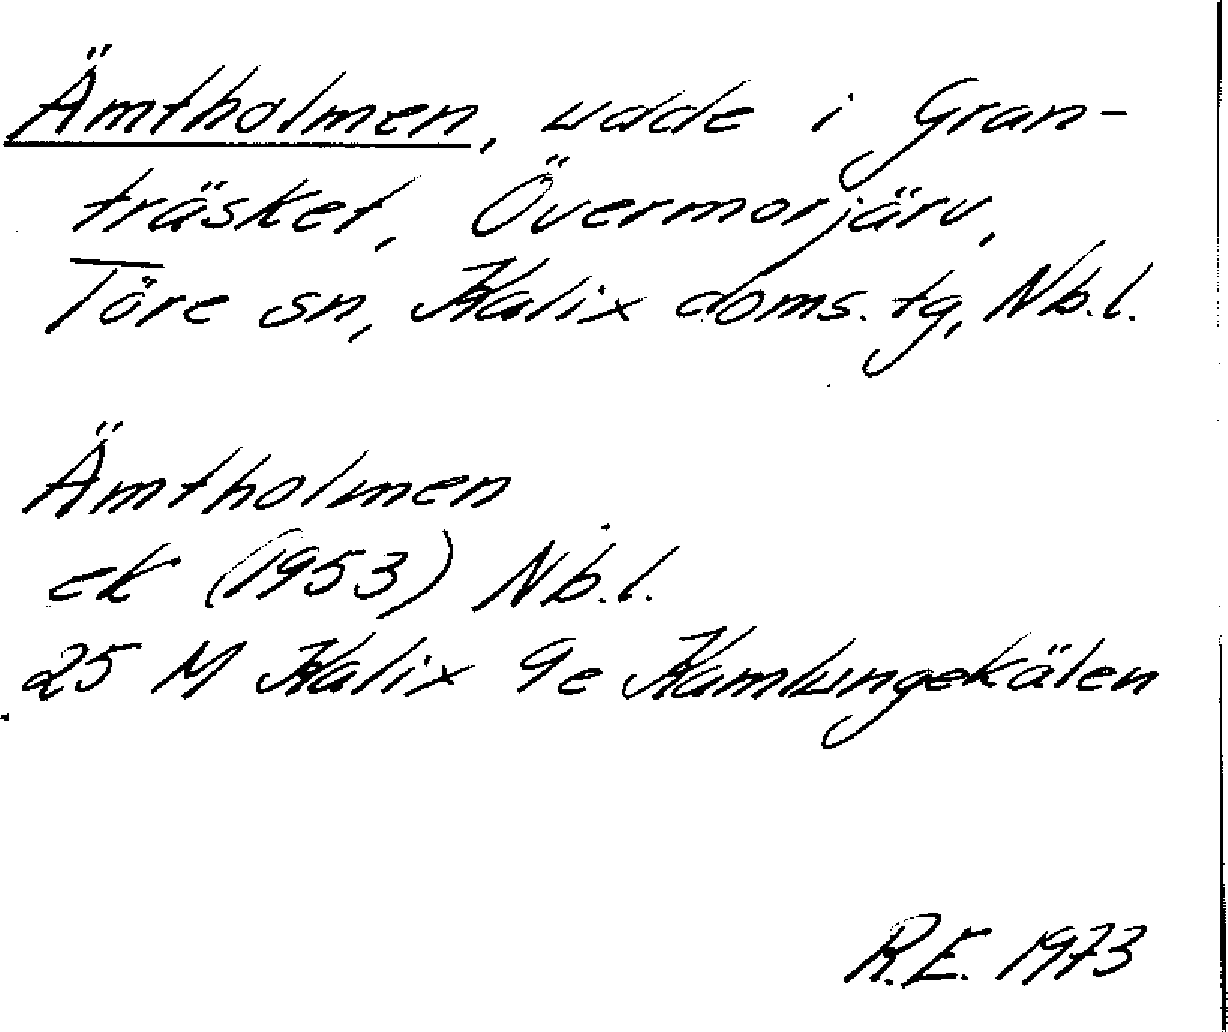 Ämtholmen, udde i Gran-
träsket, Övermorjärv,
Töre sn, Kalix doms. tg, Nb.l.
Ämtholmen
ek (1953) Nb.l.
25 M Kalix 9e Kamlungekälen
R.E. 1973